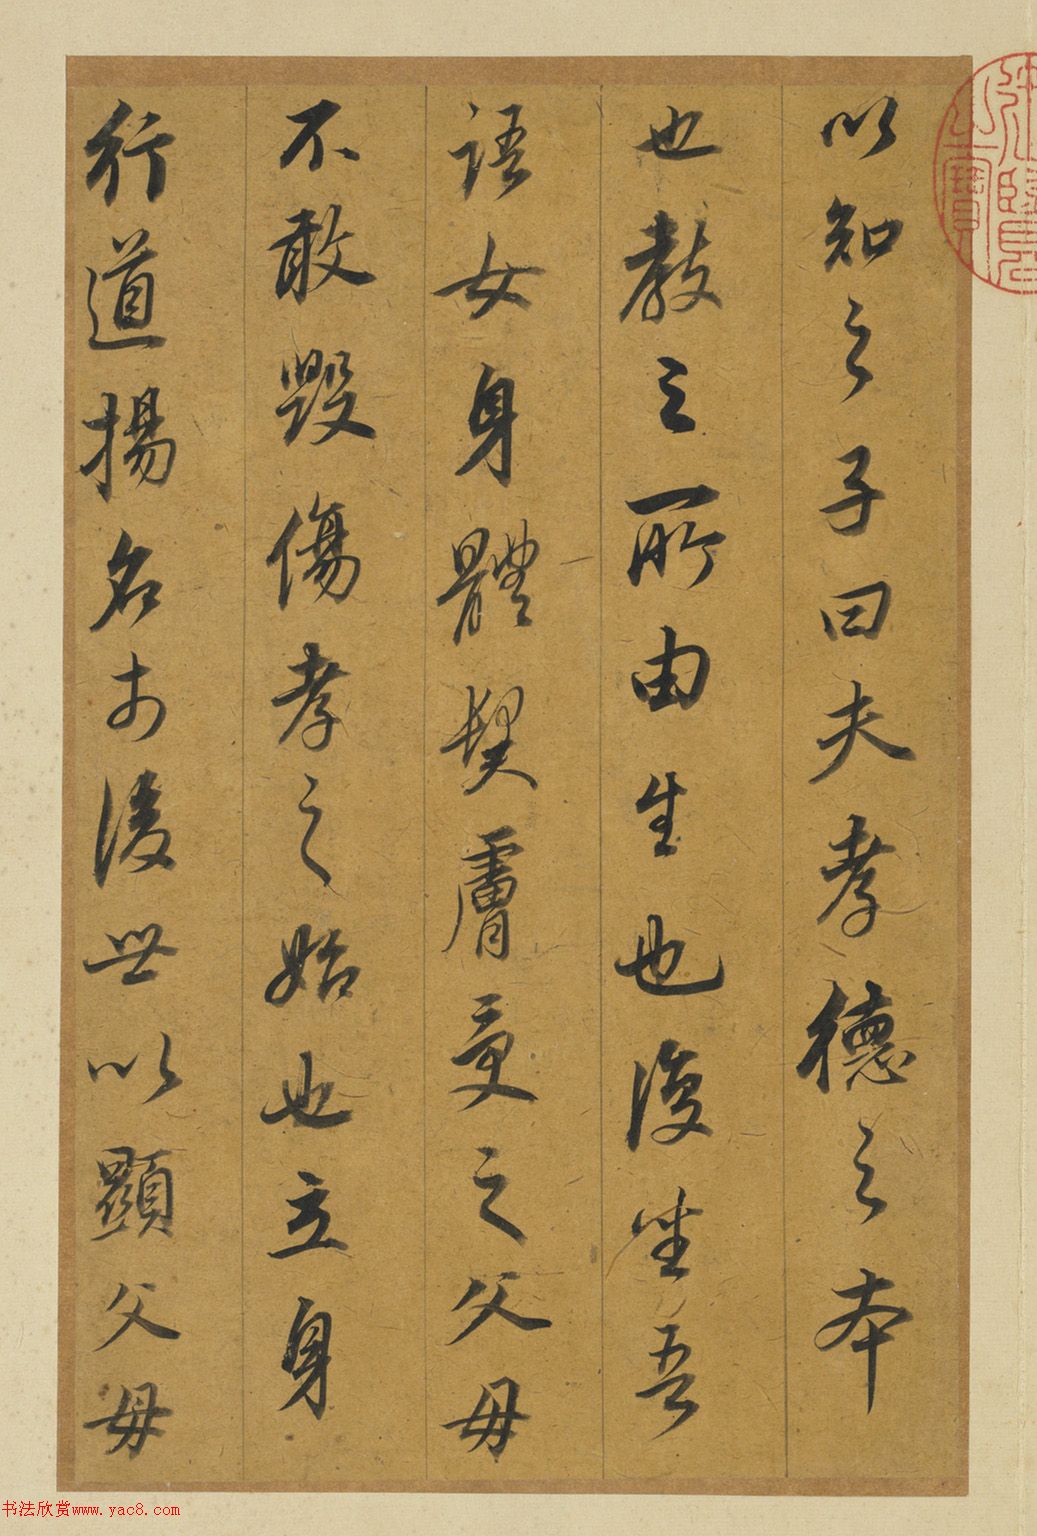 以知之子曰夫孝德之本
也教之所由生也復坐吾
語女身體髮膚受之父母
不敢毀傷孝之始也立身
行道揚名於後世以顯父母
书法欣赏www.yac8.com